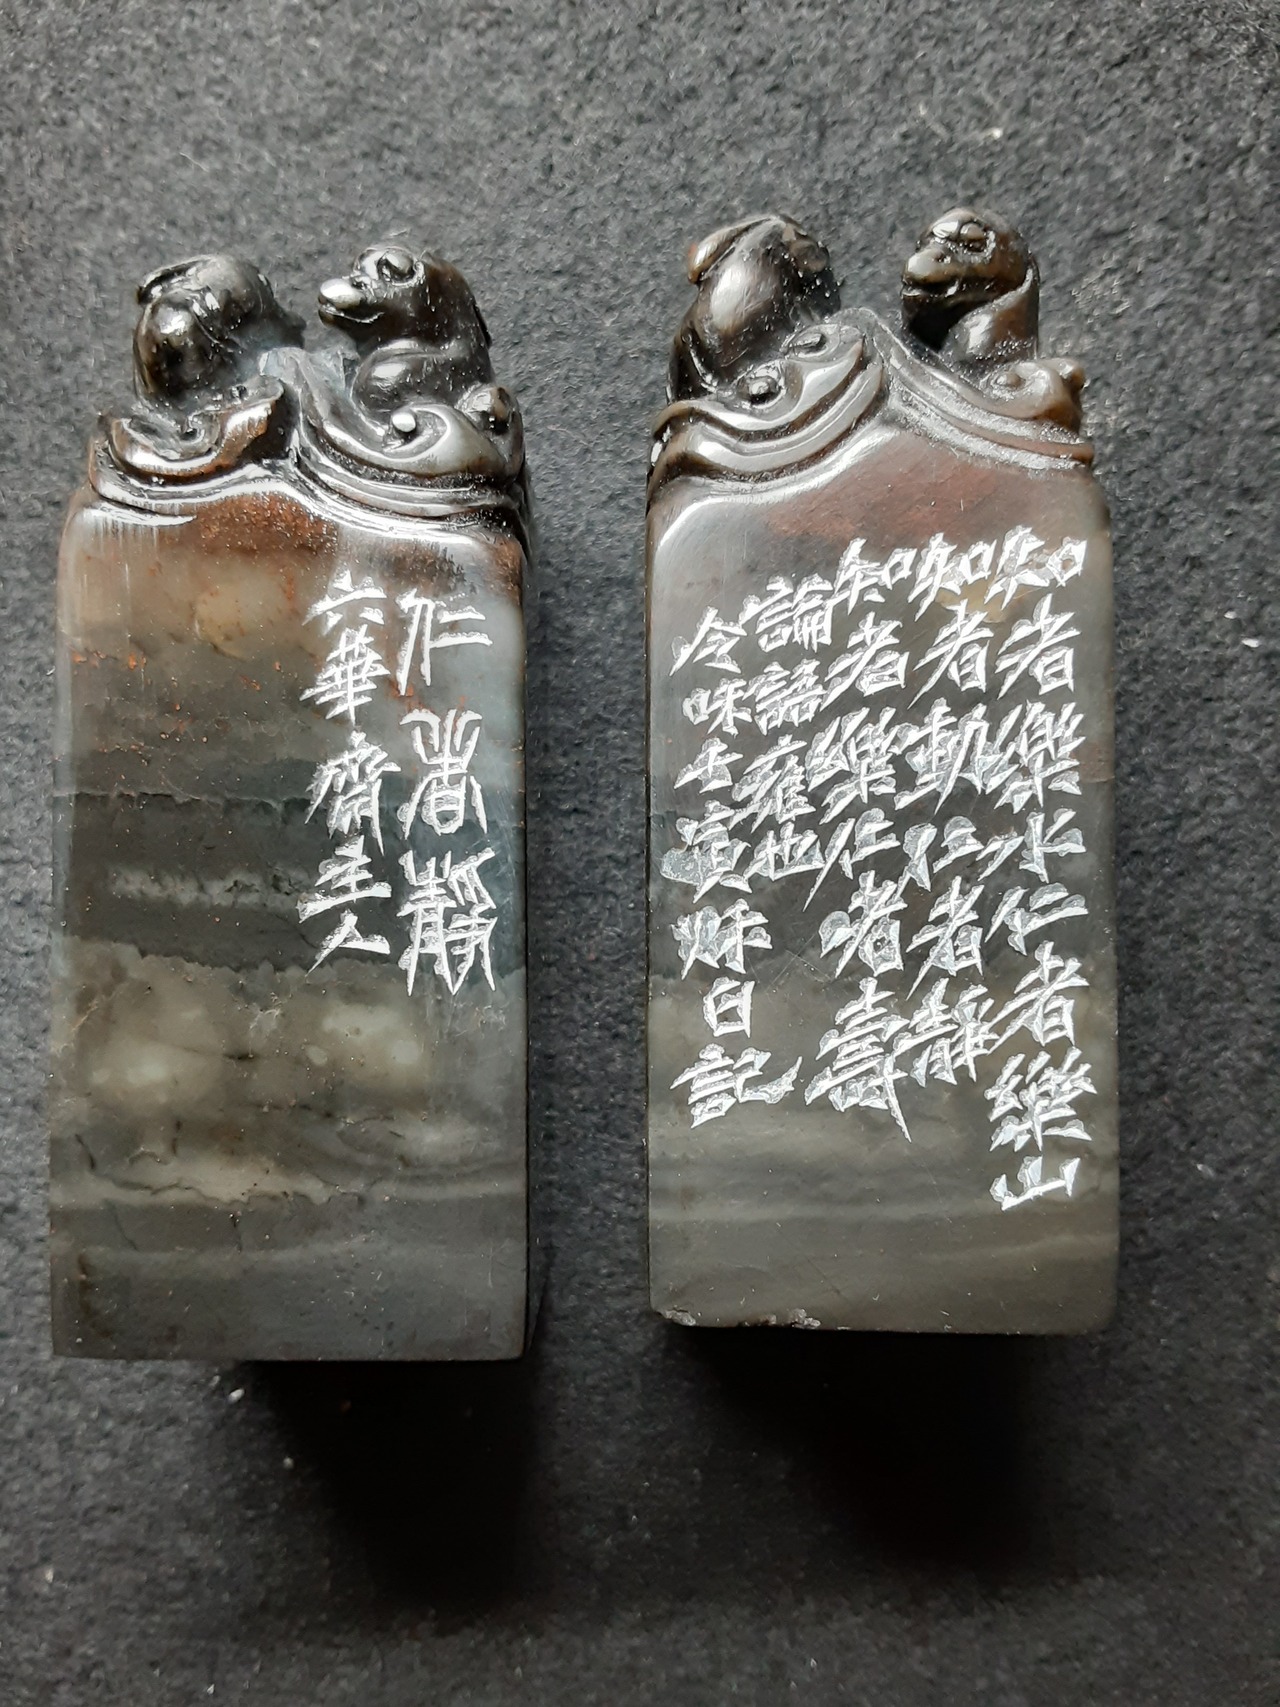 知者樂水仁者樂山
知者動仁者靜
知者樂仁者壽
論語雍也
令味壬寅秋日記
仁者靜
六華齋主人